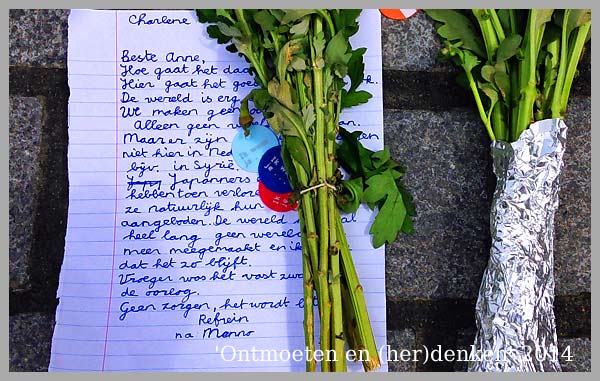 Charlene
Beste Anne,
Hoe gaat het daa
Hier gaat het goe k.
De wereld is erg
We maken geen an.
Alleen geen
Maar er zijn den
niet hier in Ne
bijv. in Syrië.
Japanners
hebben toen verlor
ze natuurlijk hun
aangeboden. De wereld at
heel lang geen werel
meer meegemaakt en ik
dat het zo blijft.
Vroeger was het vast zwa
de oorlog.
Geen zorgen, het wordt b
Refrein
na Manno
'Ontmoeten en (her)denken' 2014